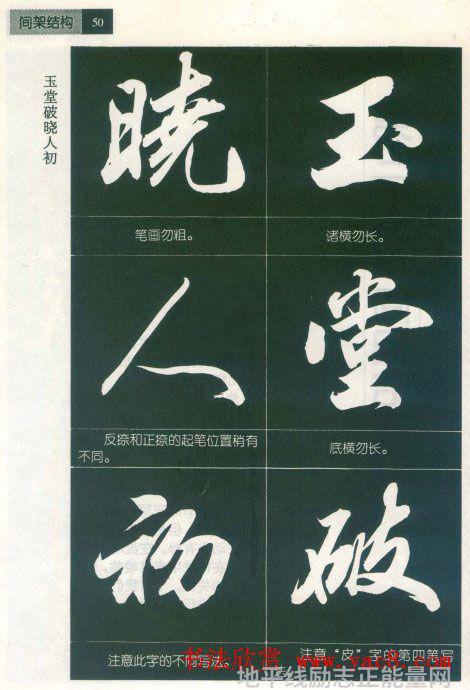 间架结构 50
玉堂破晓人初
玉
诸横勿长。
堂
底横勿长。
破
注意“皮”字的第四笔写
晓
笔画勿粗。
人
反捺和正捺的起笔位置稍有
不同。
初
注意此字的不同写法。
书法欣赏 www.yac8.com
地平线励志正能量网